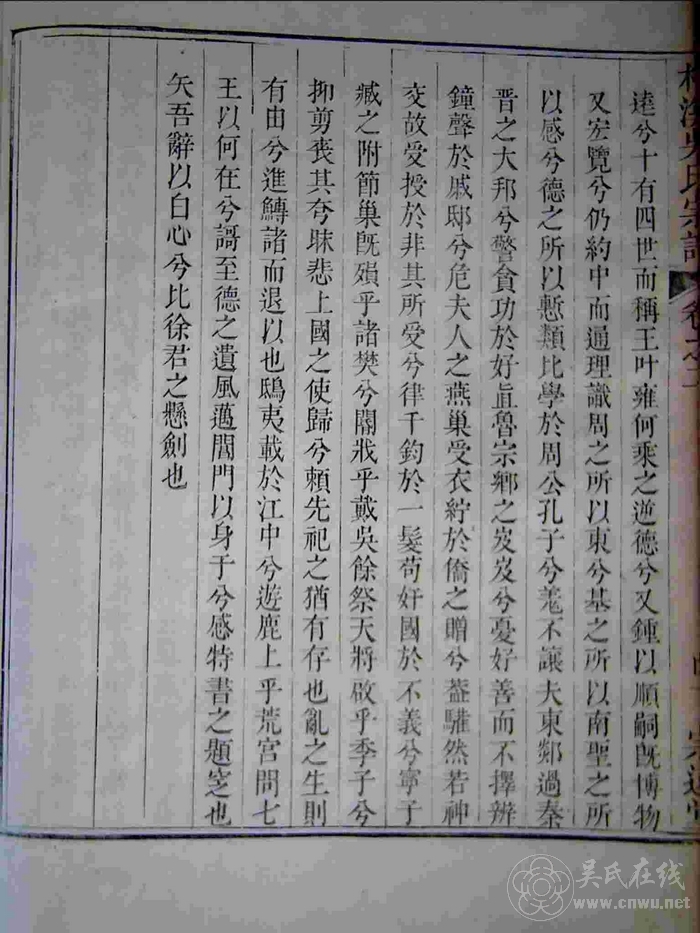 吳氏宗譜
逵兮十有四世而稱王叶雍何乘之逆德兮又鍾以順嗣旣博物
又宏覽兮仍約中而通理識周之所以東兮基之所以南聖之所
以感兮德之所以慙類比學於周公孔子兮羌不讓夫東郯過秦
晋之大邦兮警貪功於好直魯宗鄉之岌岌兮憂好善而不擇辨
鐘聲於戚邸兮危夫人之燕巢受衣紵於僑之贈兮葢驩然若神
交故受授於非其所受兮律千鈞於一髮苟奸國於不義兮寧子
臧之附節巢旣殞乎諸樊兮閽戕乎戴吳餘祭天將啟乎季子兮
抑剪喪其夸昧悲上國之使歸兮賴先祀之猶有存也亂之生則
有由兮進鱄諸而退以也鴟夷載於江中兮遊鹿上乎荒宮問七
王以何在兮謌至德之遺風邁閶門以身于兮感特書之題窆也
矢吾辭以白心兮比徐君之懸劍也
吴氏在线
www.cnwu.net